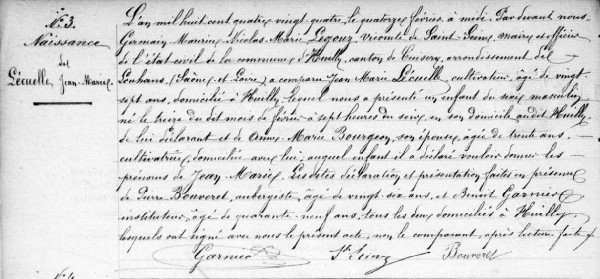 N° 3.
Naissance
de
Lécuelle Jean-Marie
L'an mil huit cent quatre-vingt-quatre, le quatorze février, à midi. Par devant nous
Germain Maurice Nicolas Marie Legouz, vicomte de Saint-Seine, maire et officier
de l'état civil de la commune d'Huilly, canton de Cuisery, arrondissement de
Louhans, (Saône et Loire) a comparu Jean Marie Lécuelle, cultivateur, âgé de vingt-
sept ans, domicilié à Huilly, lequel nous a présenté un enfant du sexe masculin
né le treize du dit mois de février à sept heures du soir, en son domicile audit Huilly,
de lui déclarant et de Anne Marie Bourgeon, son épouse, âgée de trente ans,
cultivatrice, domiciliée avec lui; auquel enfant il a déclaré vouloir donner les
prénoms de Jean-Marie. Lesdites déclaration et présentation faites en présence
de Pierre Bouveret, aubergiste, âgé de vingt-six ans, et Benoit Garnier
instituteur, âgé de quarante-neuf ans, tous les deux domiciliés à Huilly,
lesquels ont signé avec nous le présent acte, non le comparant, après lecture faite
Garnier St Seine Bouveret
N° 4